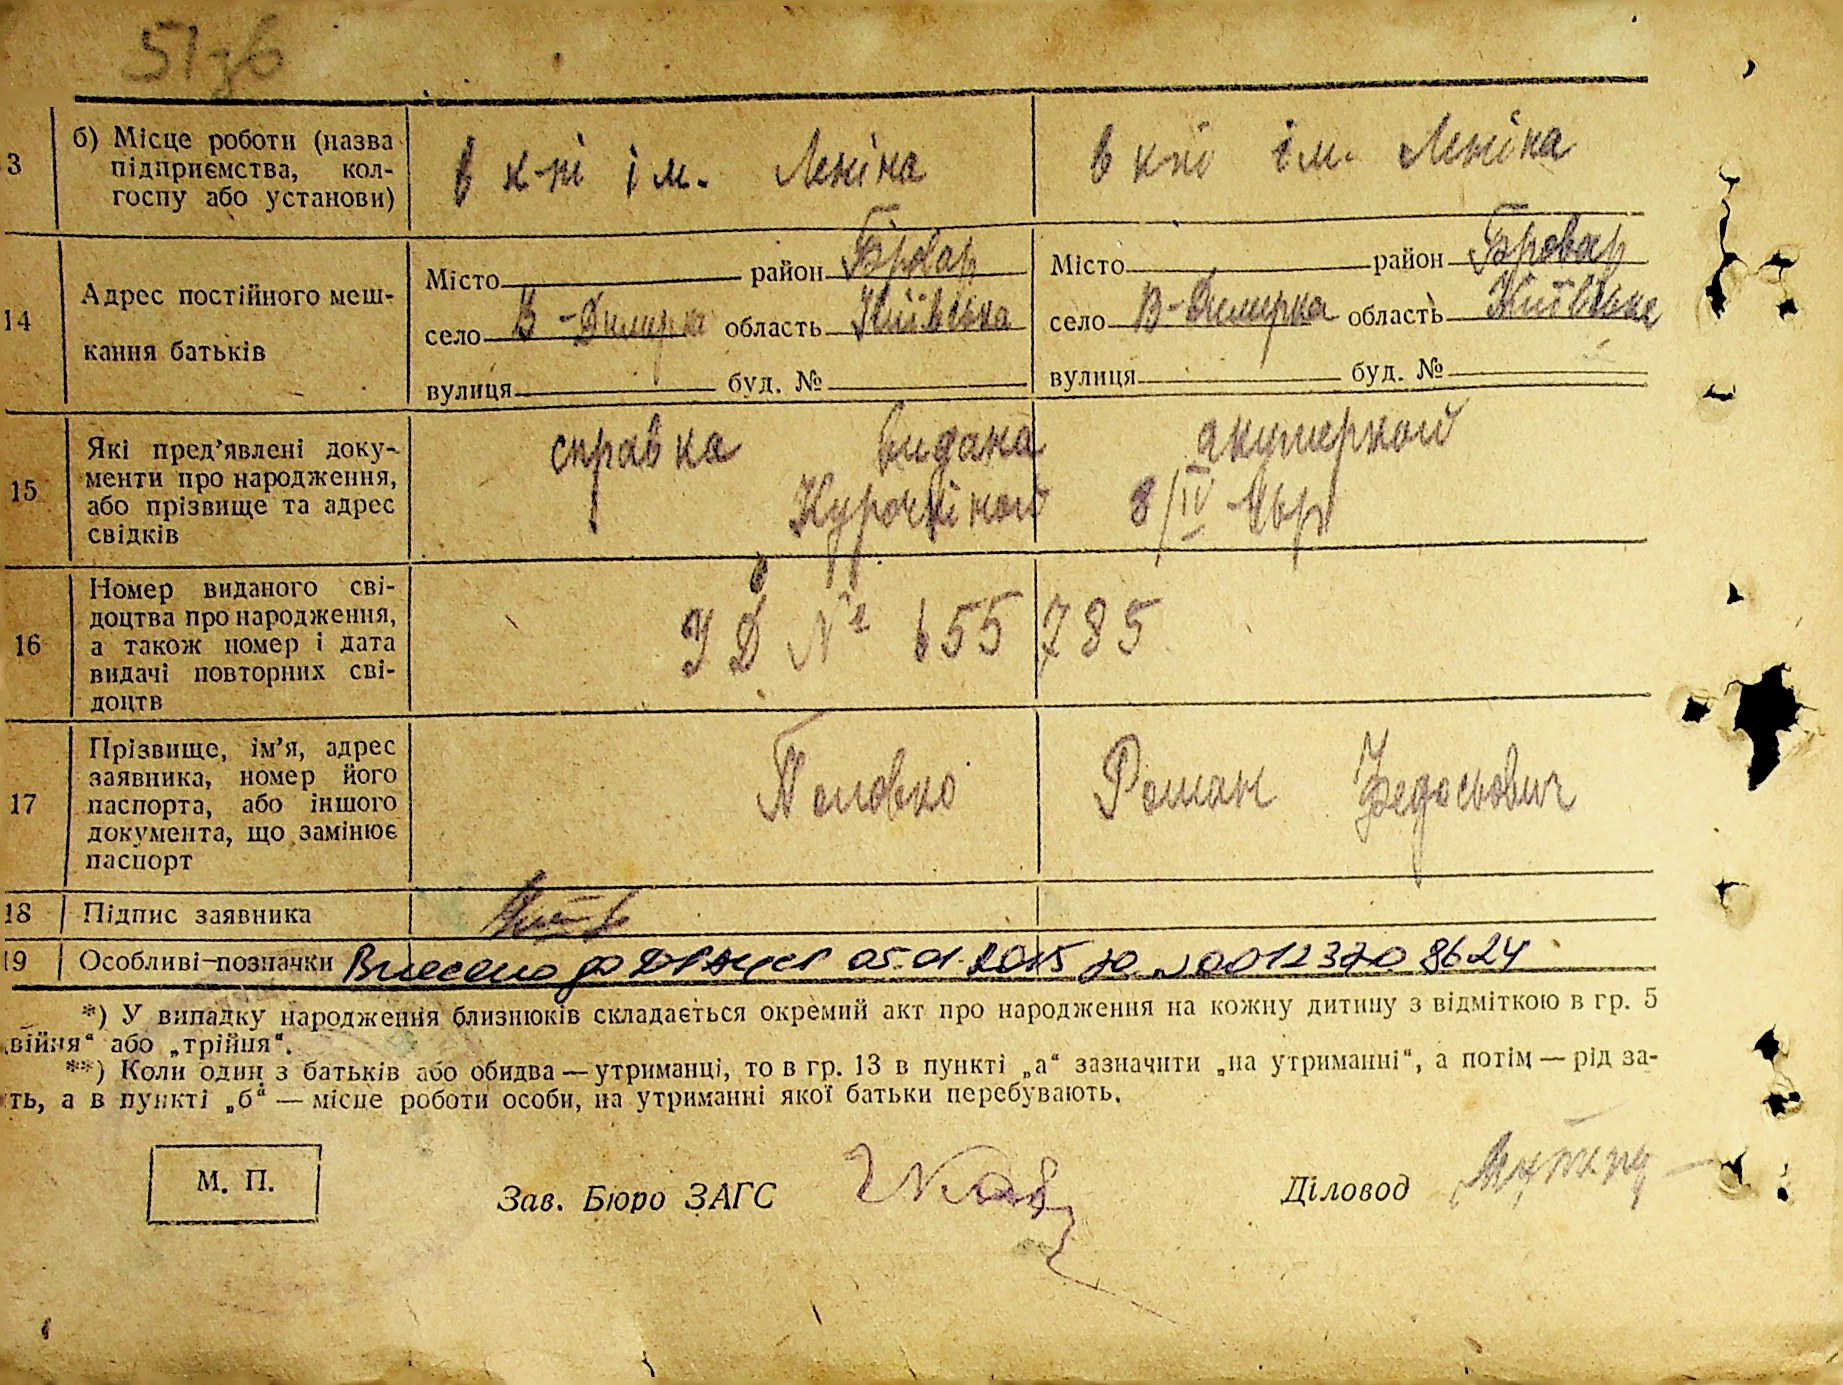 51зб
3 б) Місце роботи (назва підприємства, кол-госпу або установи)
в к-пі ім. Леніна
в к-пі ім. Леніна
14 Адрес постійного меш-
кання батьків
Місто район Бровар
село В-Димирка область Київська
вулиця буд. №
Місто район Бровар
село В-Димирка область Київська
вулиця буд. №
15 Які пред’явлені доку-
менти про народження,
або прізвище та адрес
свідків
справка видана акушеркой
Курочкіной 8/IV
16 Номер виданого сві-
доцтва про народження,
а також номер і дата
видачі повторних сві-
доцтв
УД № 655785
17 Прізвище, ім’я, адрес
заявника, номер його
паспорта, або іншого
документа, що замінює
паспорт
Половко Роман Федосьович
18 Підпис заявника
19 Особливі позначки Внесено до 05.01.2015 00123708624
*) У випадку народження близнюків складається окремий акт про народження на кожну дитину з відміткою в гр. 5
війня“ або „трійня“.
**) Коли один з батьків або обидва — утриманці, то в гр. 13 в пункті „а“ зазначити „на утриманні“, а потім — рід за-
ть, а в пункті „б“ — місце роботи особи, на утриманні якої батьки перебувають.
М. П.
Зав. Бюро ЗАГС
Діловод